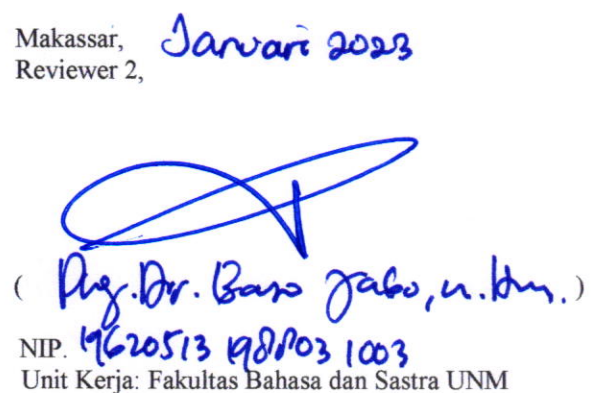 Makassar, Januari 2023
Reviewer 2,
( Prof. Dr. Baso Jabu, M. Hum. )
NIP. 19620513 198803 1003
Unit Kerja: Fakultas Bahasa dan Sastra UNM